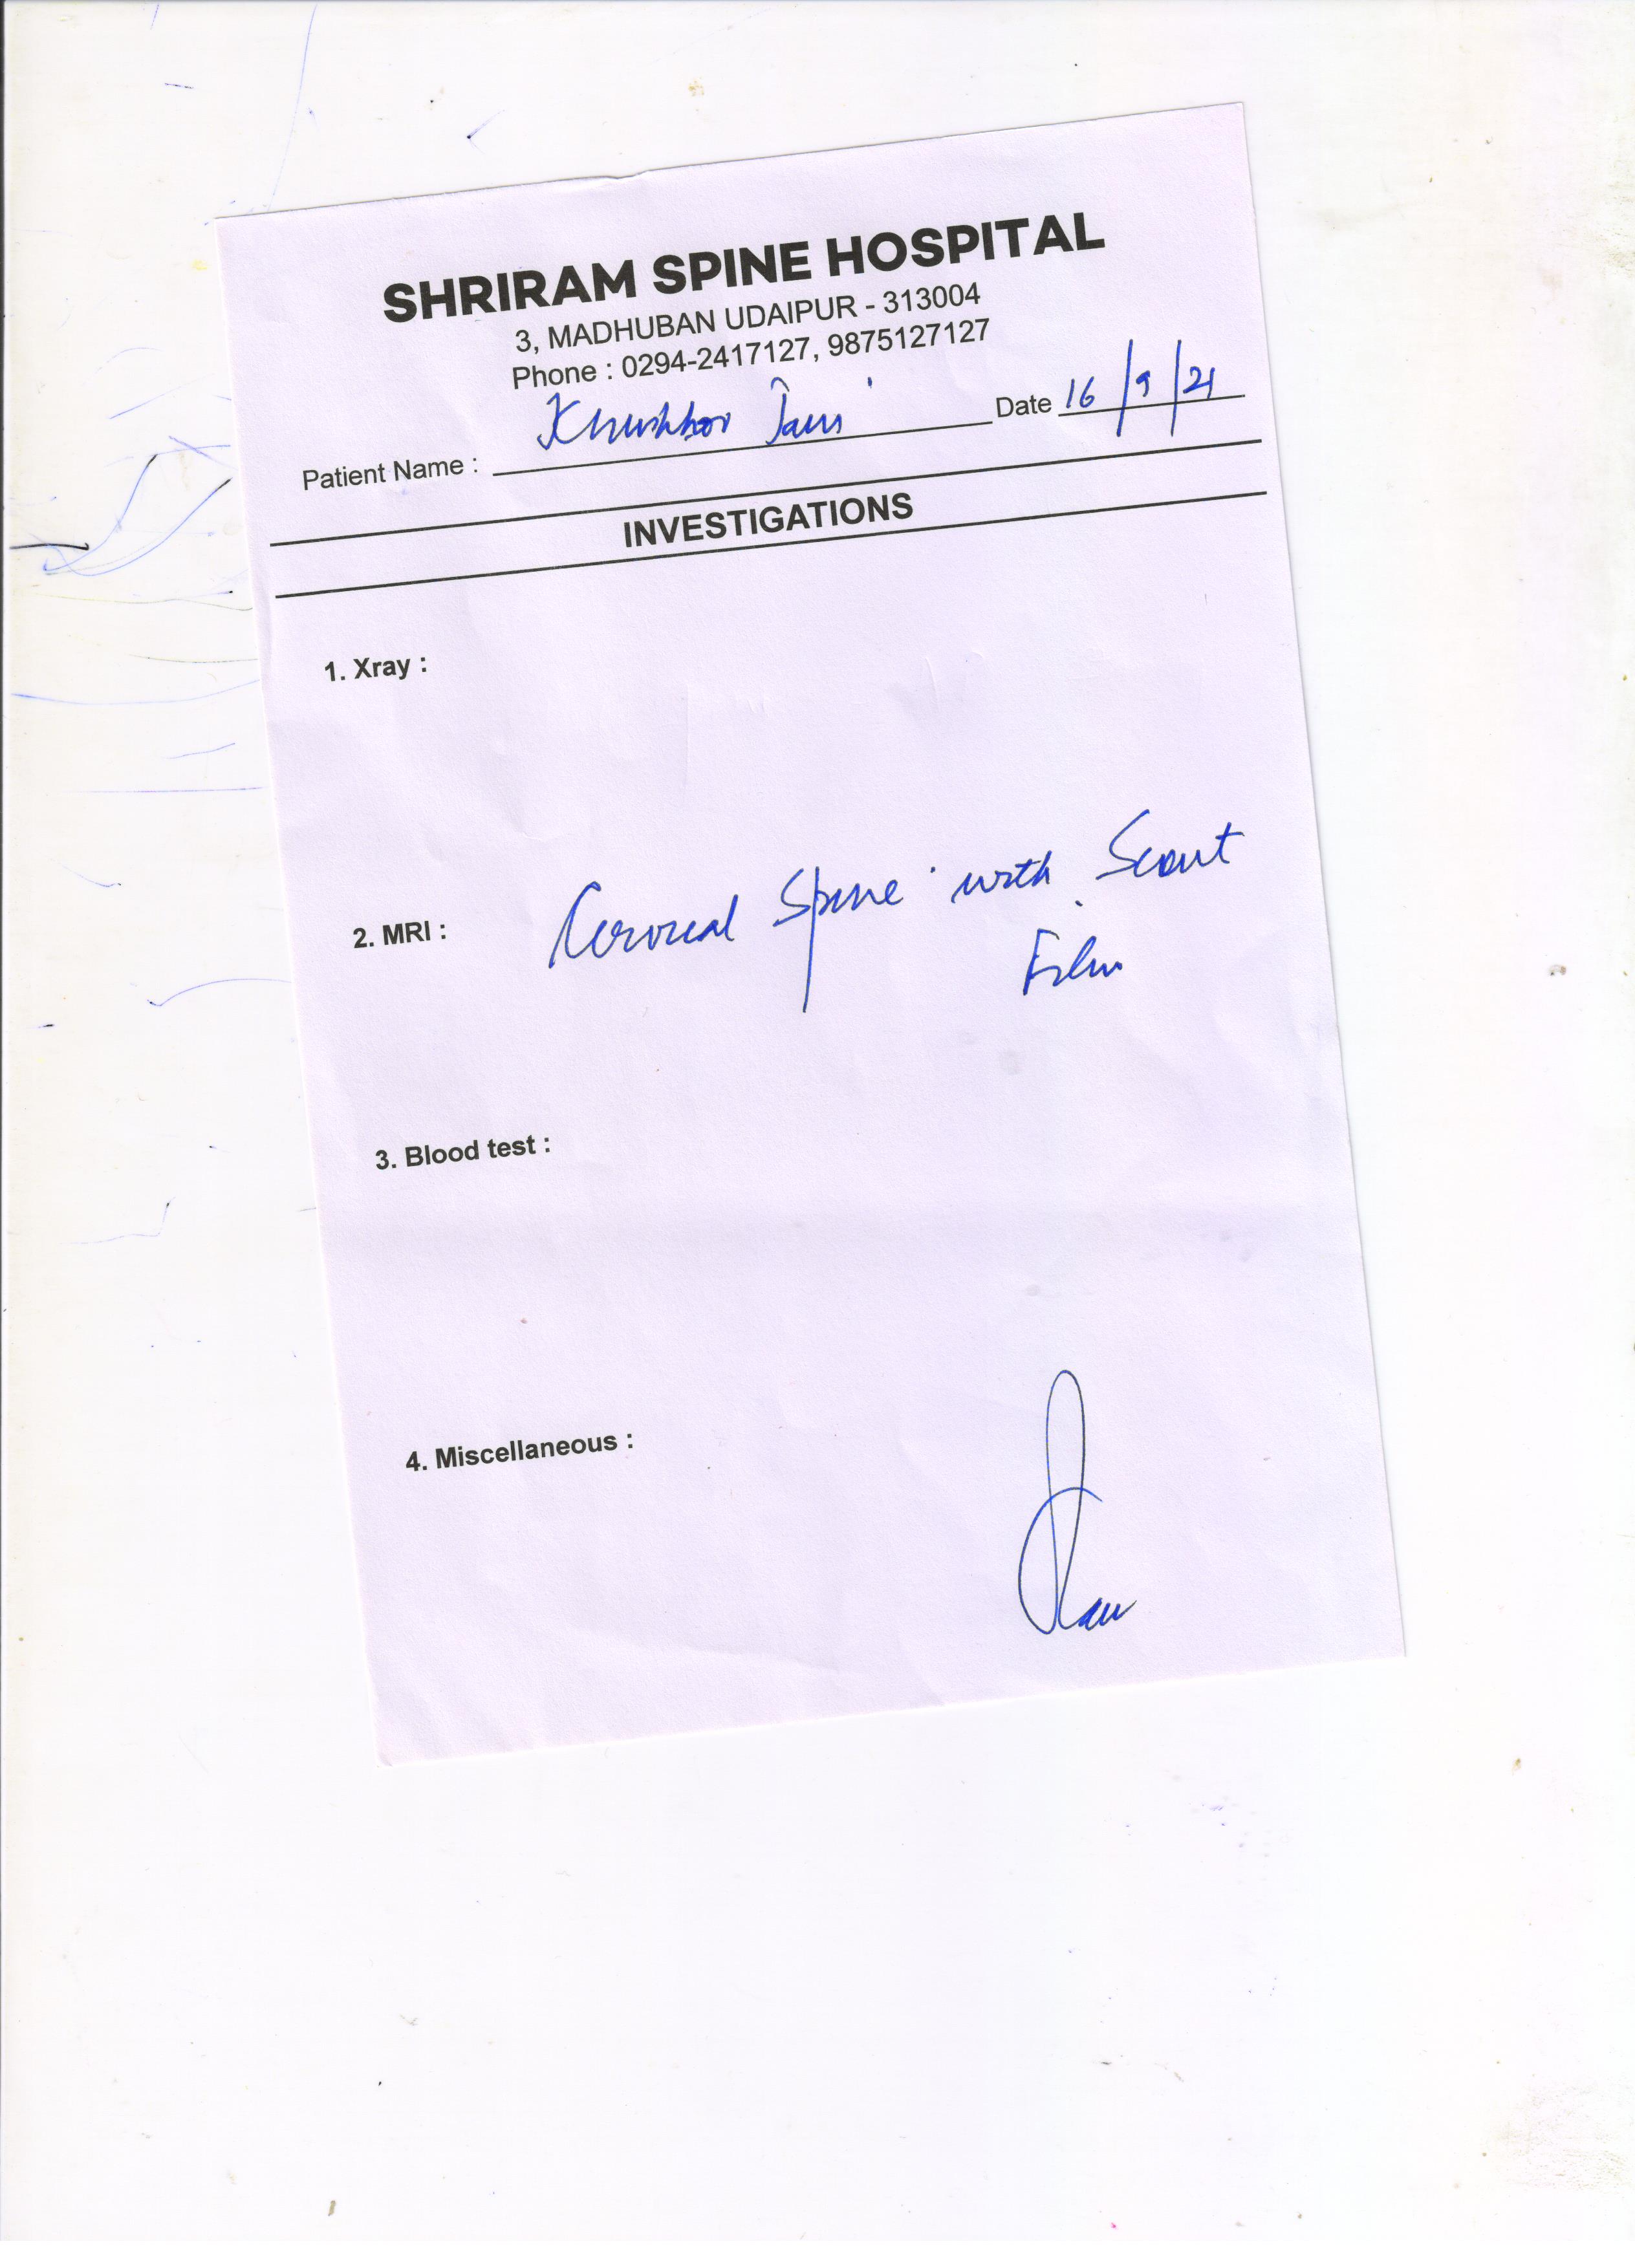 SHRIRAM SPINE HOSPITAL
3, MADHUBAN UDAIPUR - 313004
Phone : 0294-2417127, 9875127127
Patient Name : Khushboo Jain Date 16/9/21
INVESTIGATIONS
1. Xray :
2. MRI : Cervical Spine with Scout
Film
3. Blood test :
4. Miscellaneous :